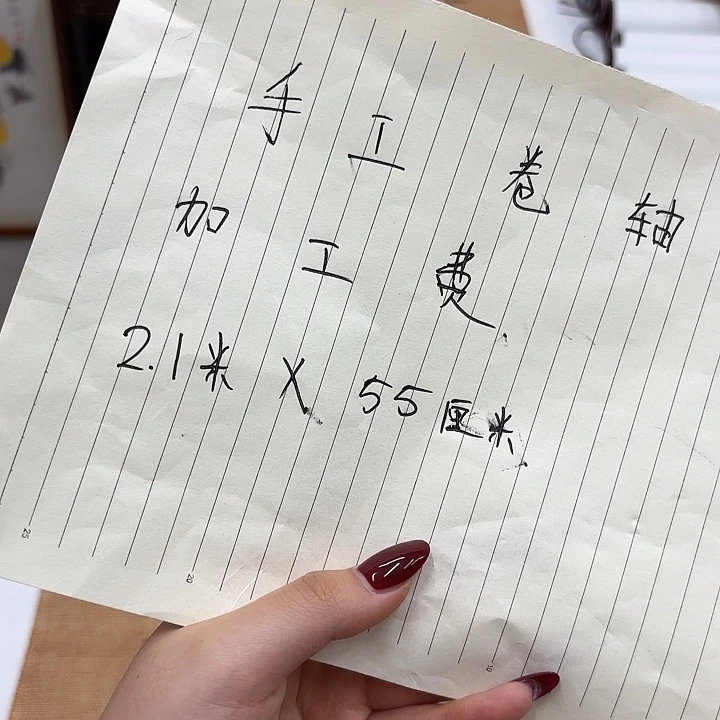 手工卷轴
加工费.
2.1米 X 55厘米.
25
20
10